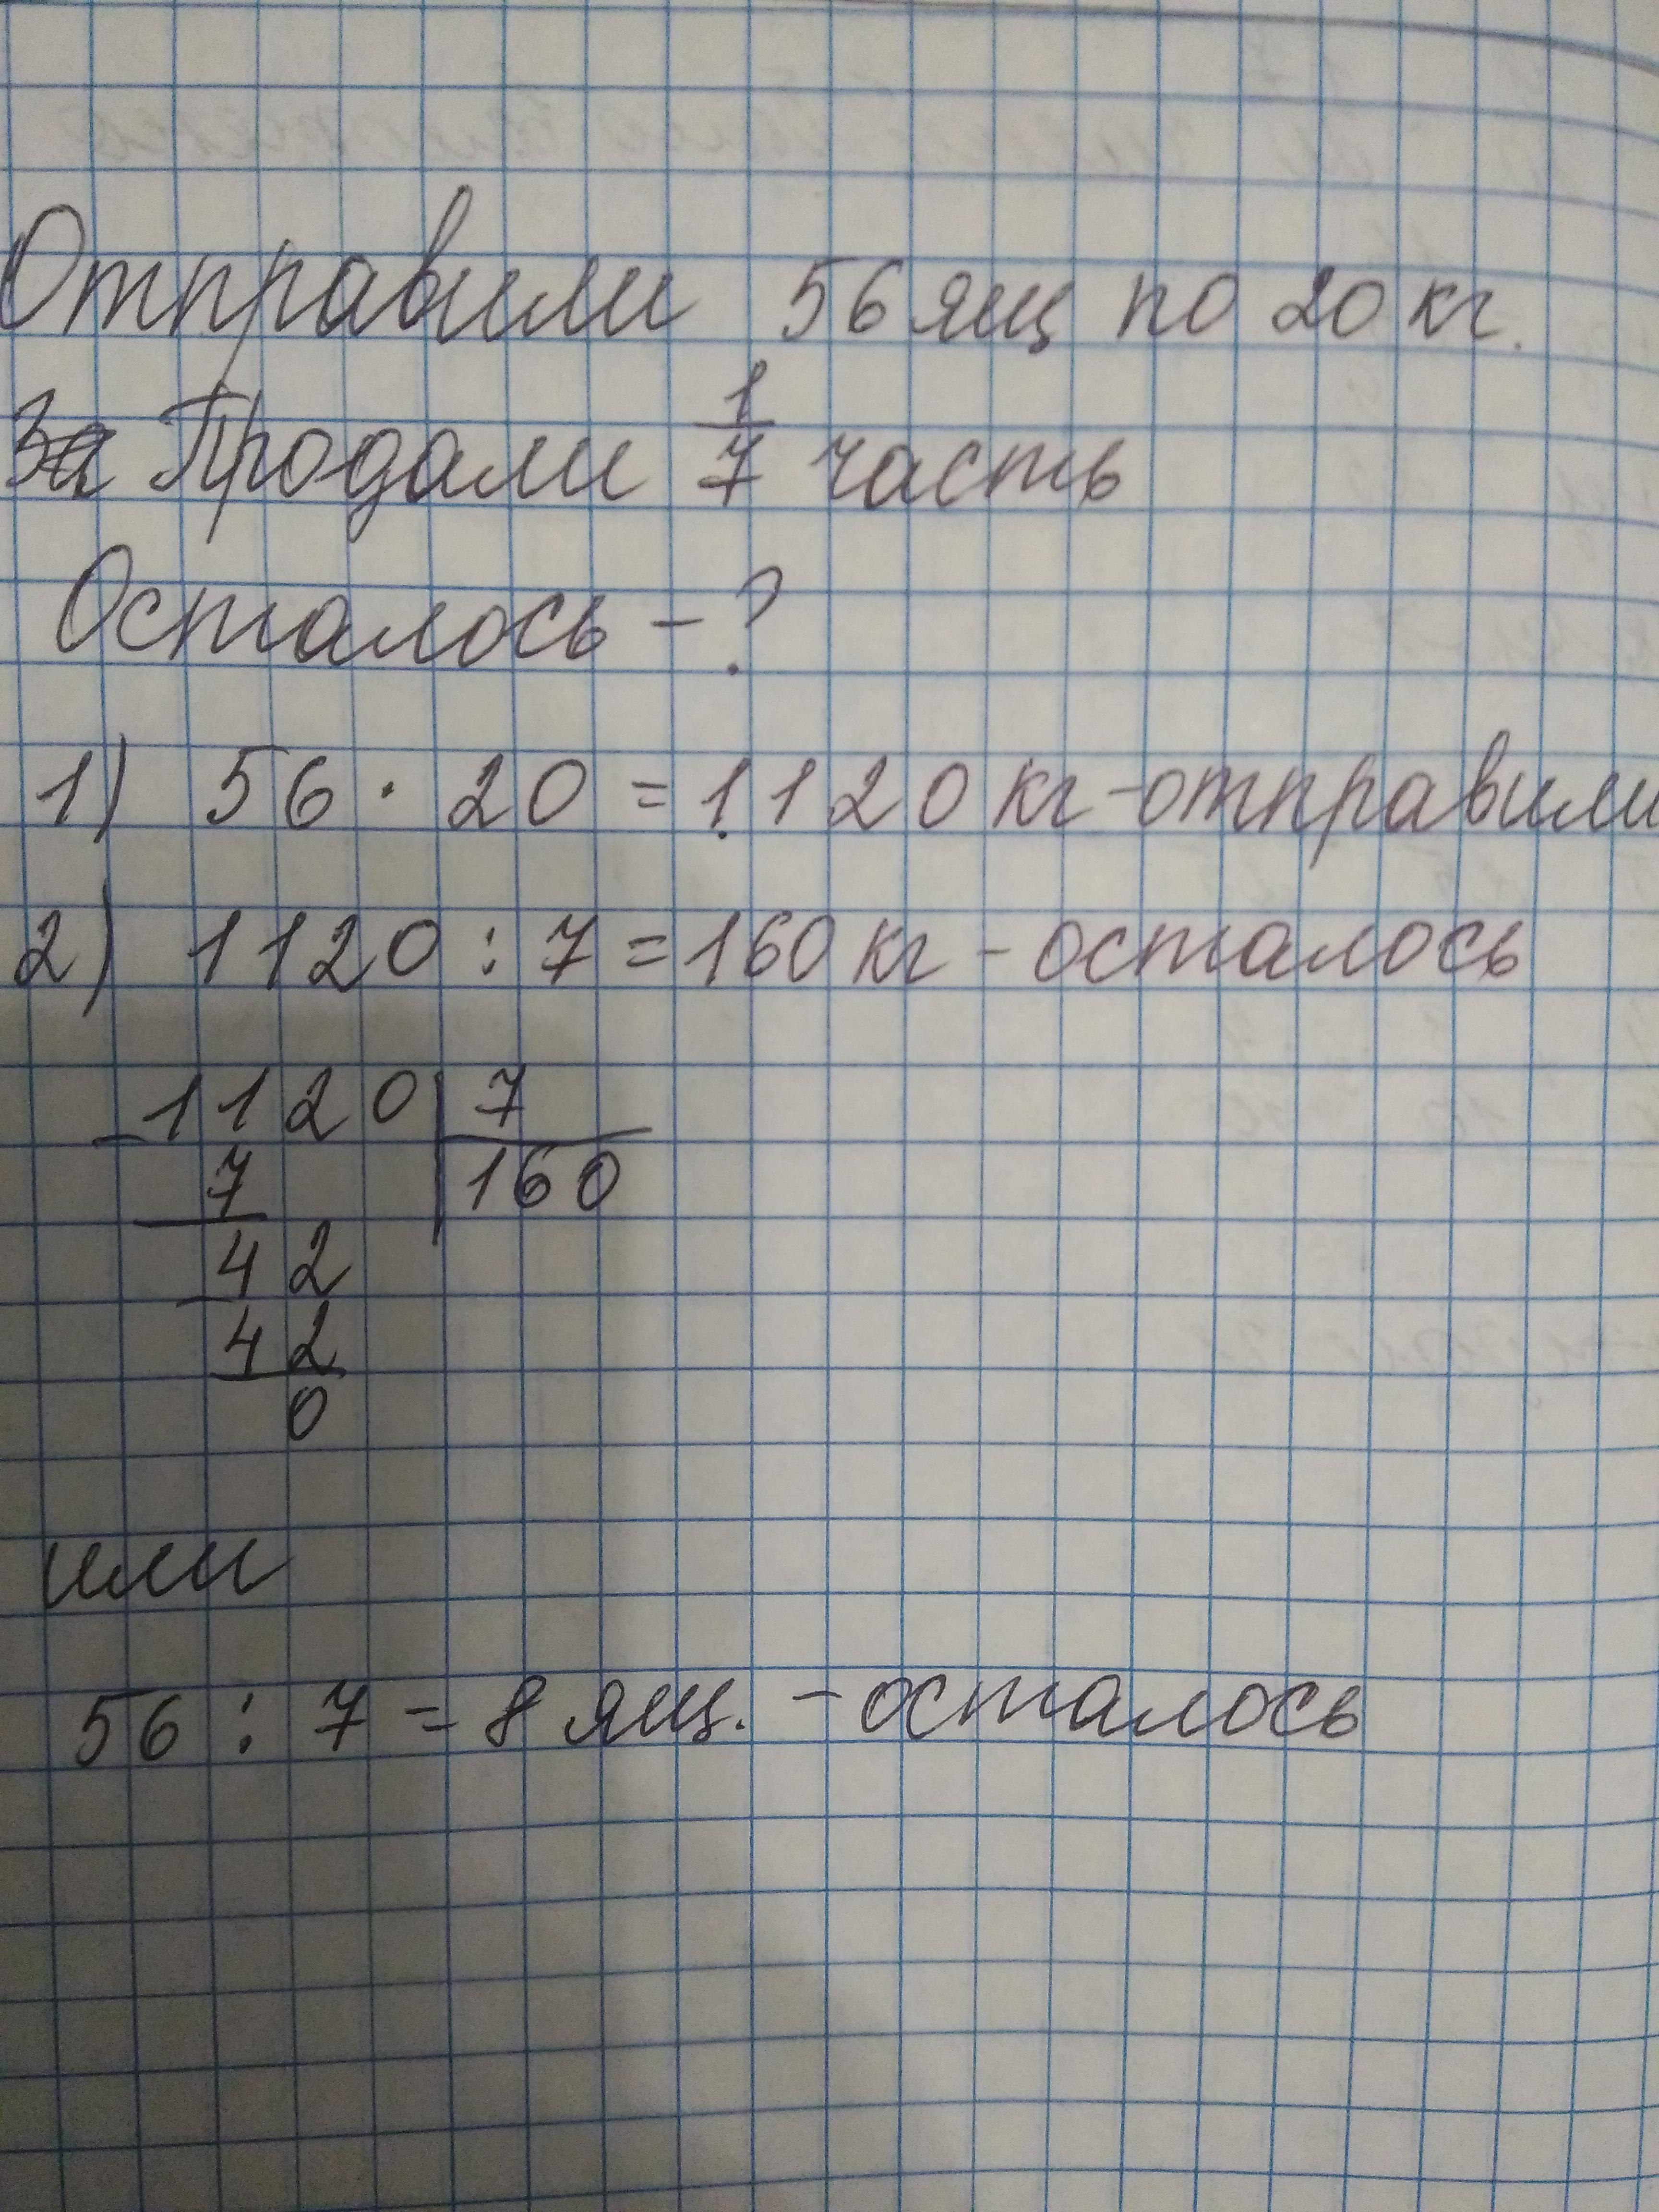 Отправили 56 ящ по 20 кг.
За Продали 1/7 часть
Осталось - ?
1) 56 · 20 = 1120 кг - отправили
2) 1120 : 7 = 160 кг - осталось
- 1120 | 7
7 160
- 42
42
0
или
56 : 7 = 8 ящ. - осталось